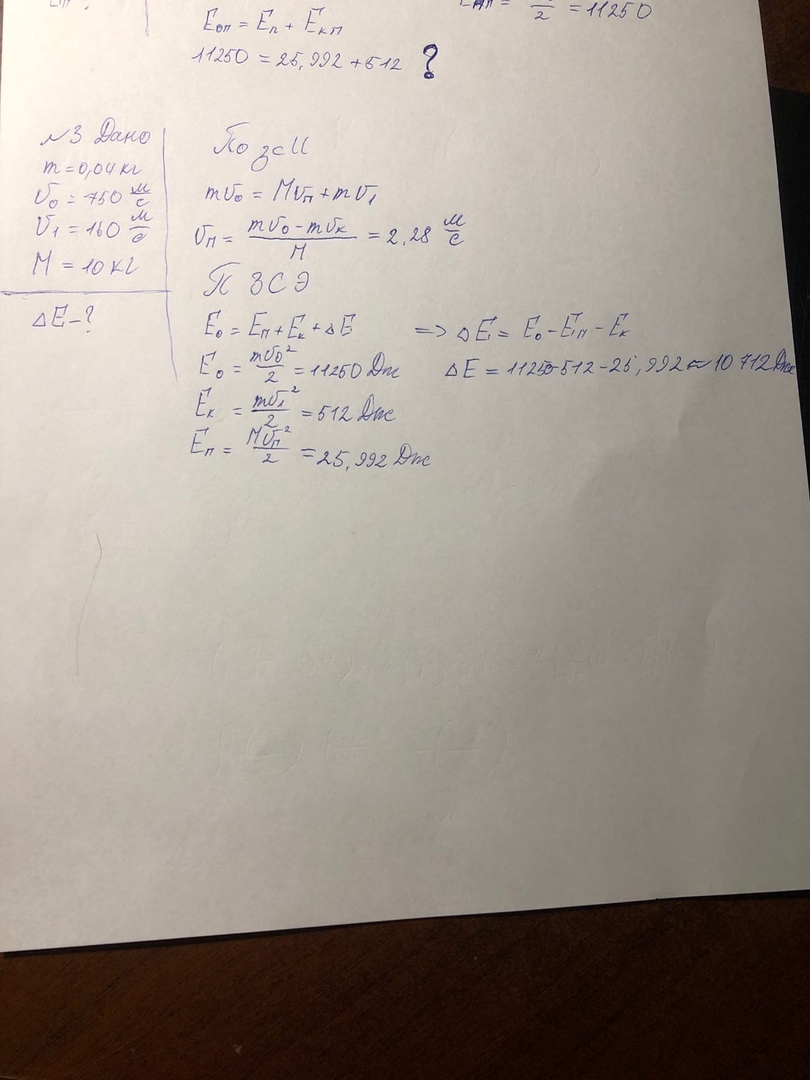 = 11250
2
Eоп = Eп + Eкп
11250 = 25,992 + 512 ?
№3 Дано
m = 0,04 кг
υ₀ = 750 м/с
υ₁ = 160 м/с
M = 10 кг
ΔE - ?
По зсИ
mυ₀ = Mυп + mυ₁
υп = (mυ₀ - mυк)/M = 2,28 м/с
П ЗСЭ
E₀ = Eп + Eк + ΔE => ΔE = E₀ - Eп - Eк
E₀ = mυ₀²/2 = 11250 Дж ΔE = 11250-512-25,992 ≈ 10 712 Дж
Eк = mυ₁²/2 = 512 Дж
Eп = Mυп²/2 = 25,992 Дж